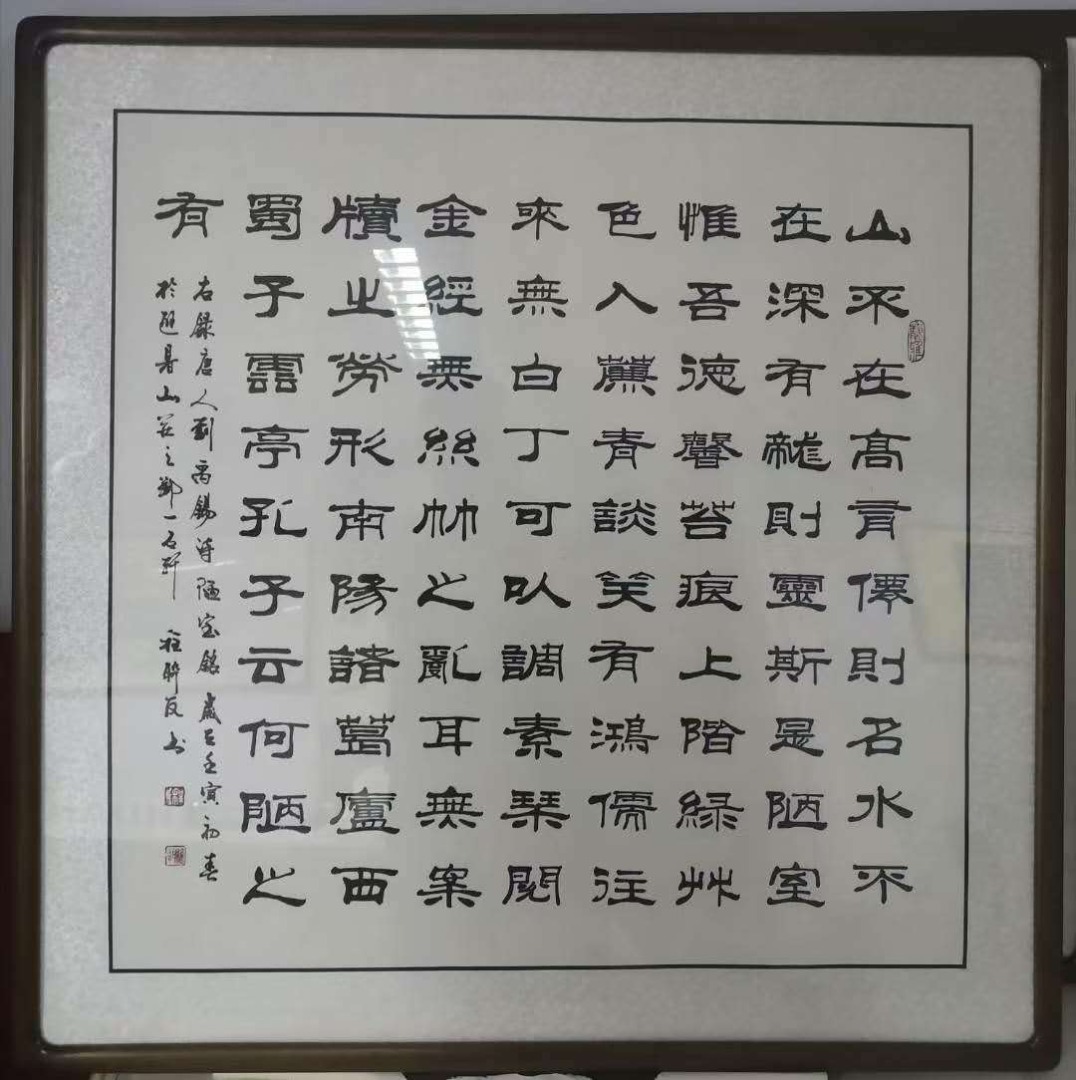 山不在高言僊則名水不
在深有龍則靈斯是陋室
惟吾德馨苔痕上階緑艸
色入簾青談笑有鴻儒往
來無白丁可以調素琴閱
金經無絲竹之亂耳無案
牘之勞形南陽諸葛廬西
蜀子雲亭孔子云何陋之
有
右録唐人劉禹錫詩陋室銘 歲在壬寅初春
於 山莊之 一石軒 書